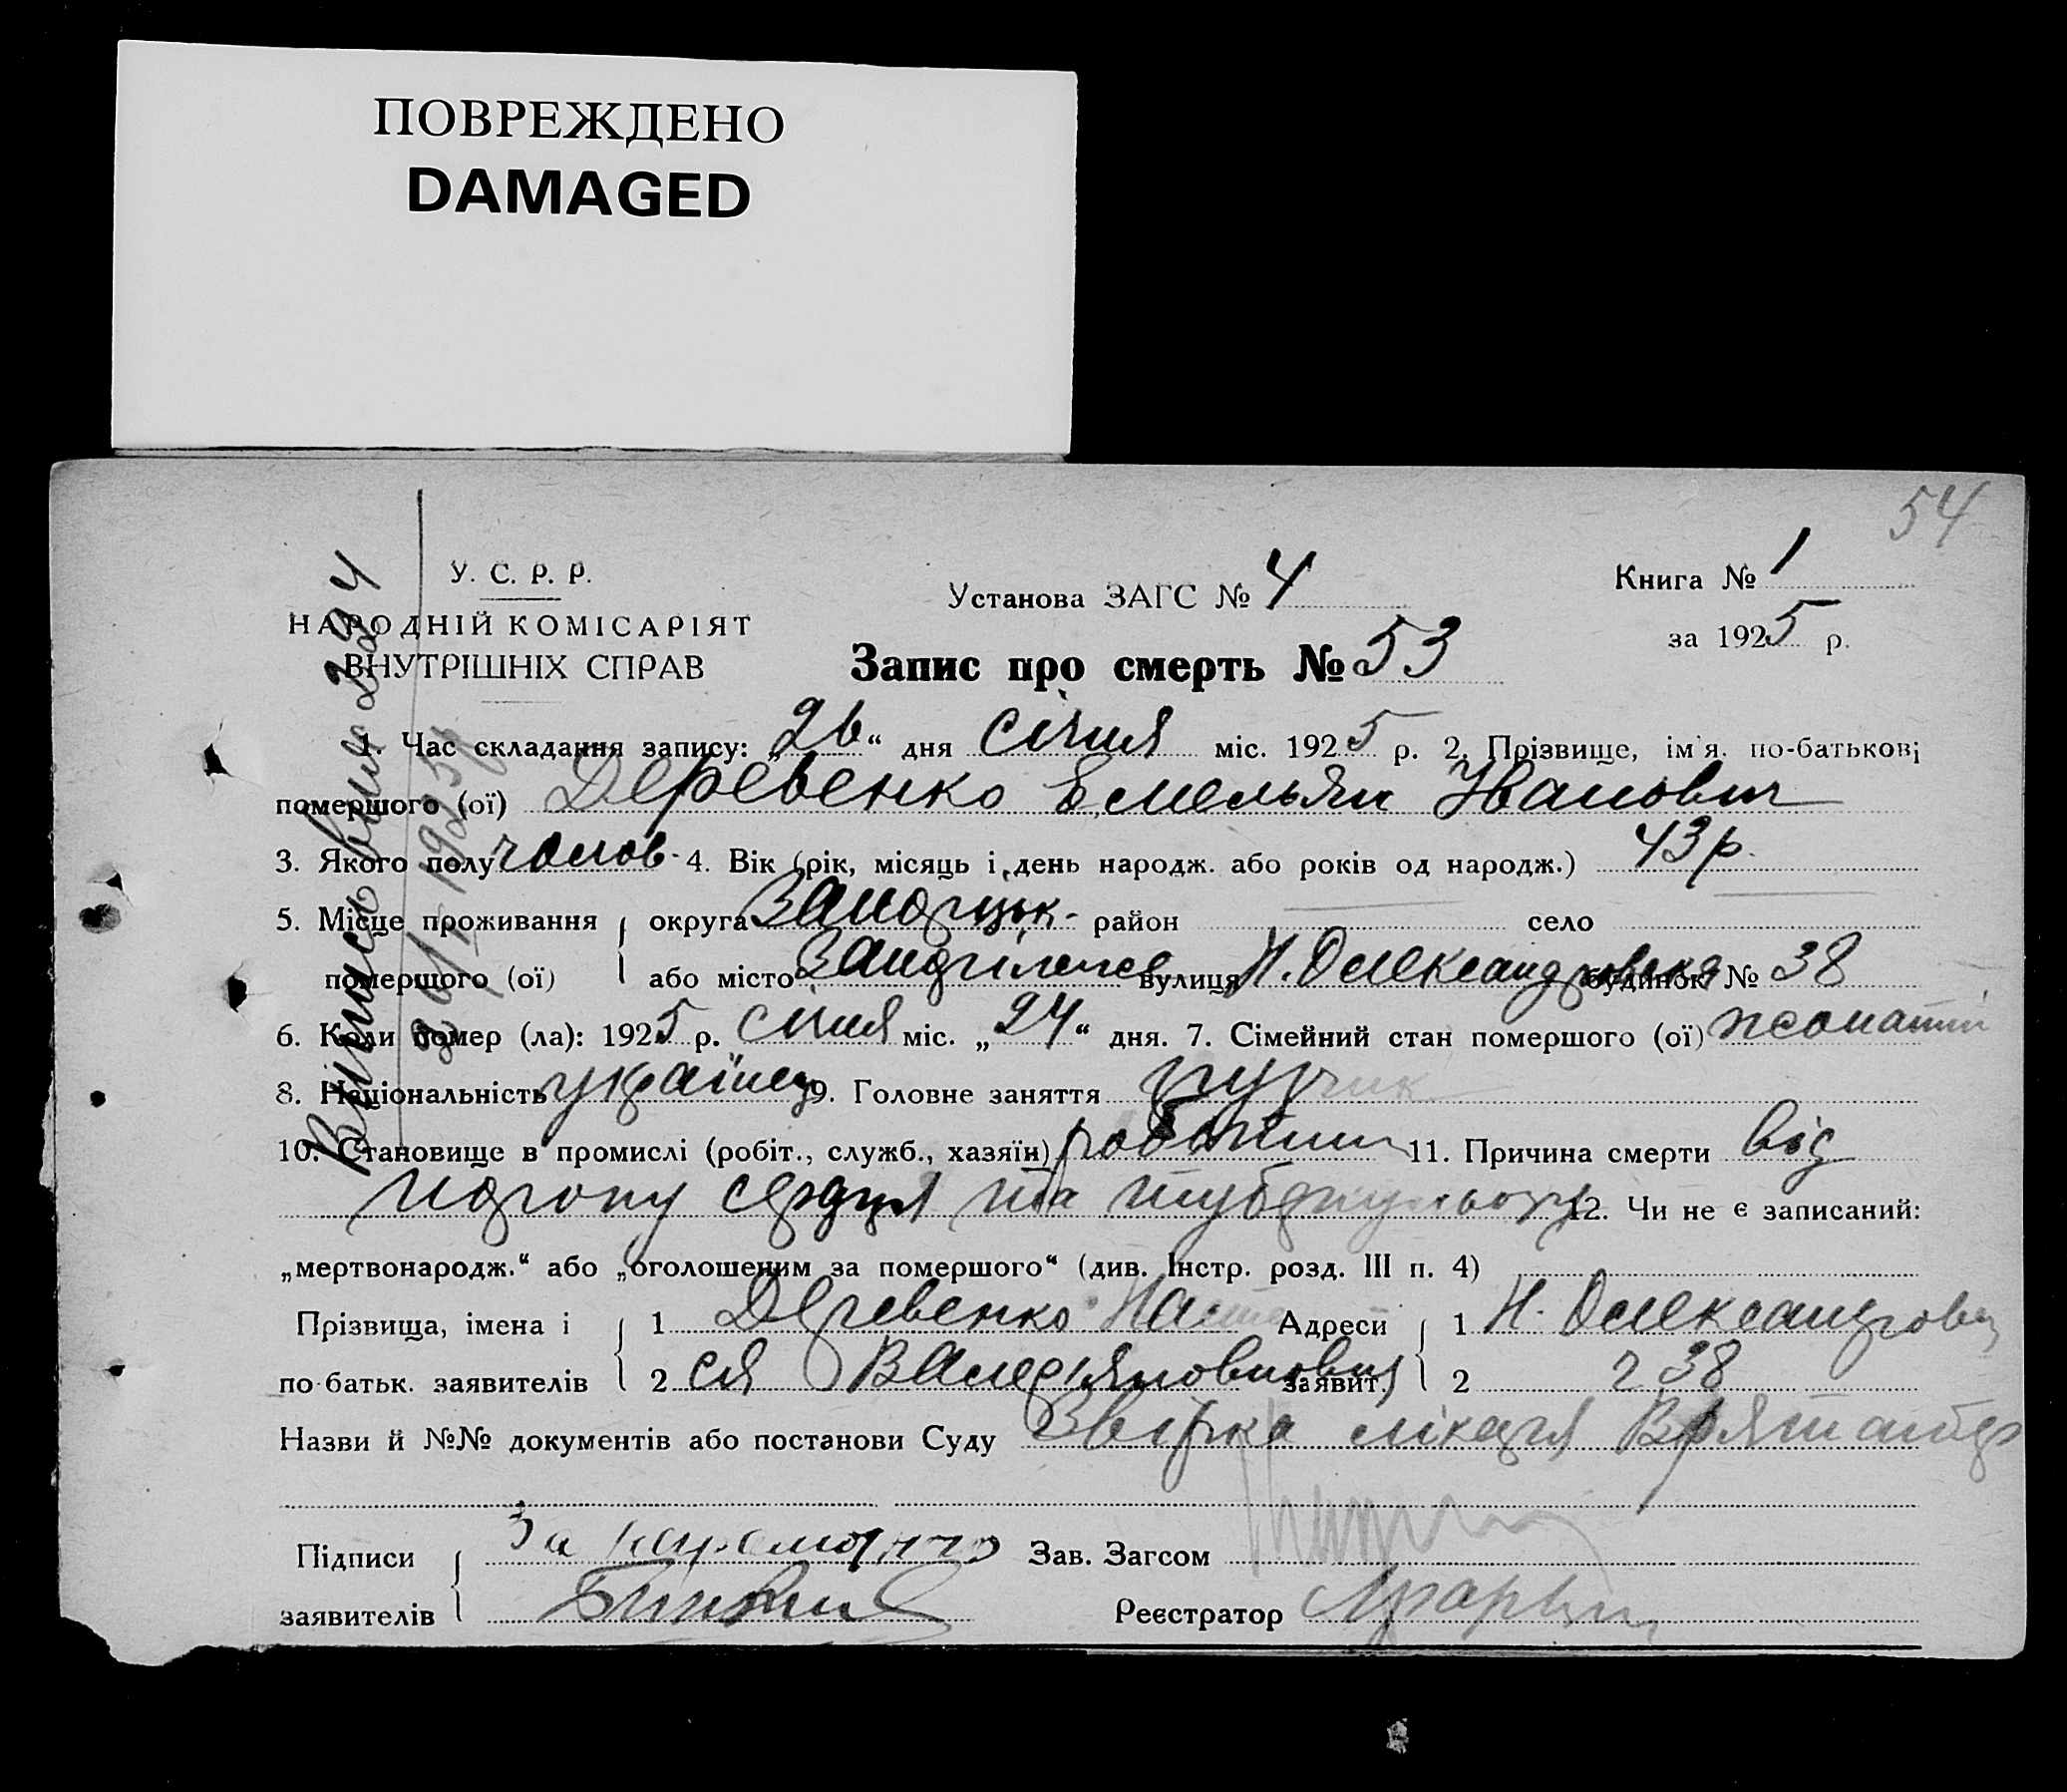 ПОВРЕЖДЕНО
DAMAGED
54
У. С. Р. Р.
НАРОДНІЙ КОМІСАРІЯТ
ВНУТРІШНІХ СПРАВ
Установа ЗАГС № 4
Книга № 1
за 1925 р.
Запис про смерть № 53
1. Час складання запису: „26“ дня січня міс. 1925 р. 2. Прізвище, ім'я, по-батькові
помершого (ої) Деревенко Емельян Иванович
3. Якого полу чолов. 4. Вік (рік, місяць і день народж. або років од народж.) 43 р.
5. Місце проживання округа район село
помершого (ої) або місто вулиця Н. Олександровска будинок № 38
6. Коли помер (ла): 1925 р. січня міс. „24“ дня. 7. Сімейний стан помершого (ої) жонатий
8. Національність українец 9. Головне заняття
10. Становище в промислі (робіт., служб., хазяїн) робітник 11. Причина смерти від
пороку серця та туберкульозу 12. Чи не є записаний:
„мертвонародж.“ або „оголошеним за помершого“ (див. Інстр. розд. III п. 4)
Прізвища, імена і 1 Деревенко Наста Адреси 1 Н. Олександровск
по-батьк. заявителів 2 ся заявит. 2 38
Назви й №№ документів або постанови Суду лікаря
Підписи За Зав. Загсом
заявителів Реєстратор
Выпись